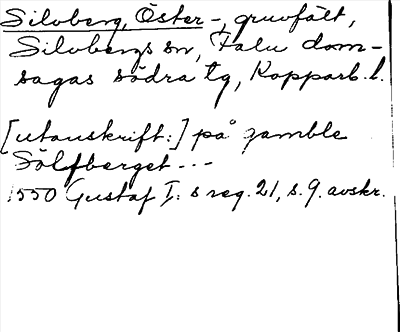 Silvberg, Öster-, gruvfält,
Silvbergs sn, Falu dom-
sagas södra tg, Kopparb. l.
[utanskrift:] på gamble
Sölfberget - - -
1550 Gustaf I:s reg. 21, s. 9. avskr.